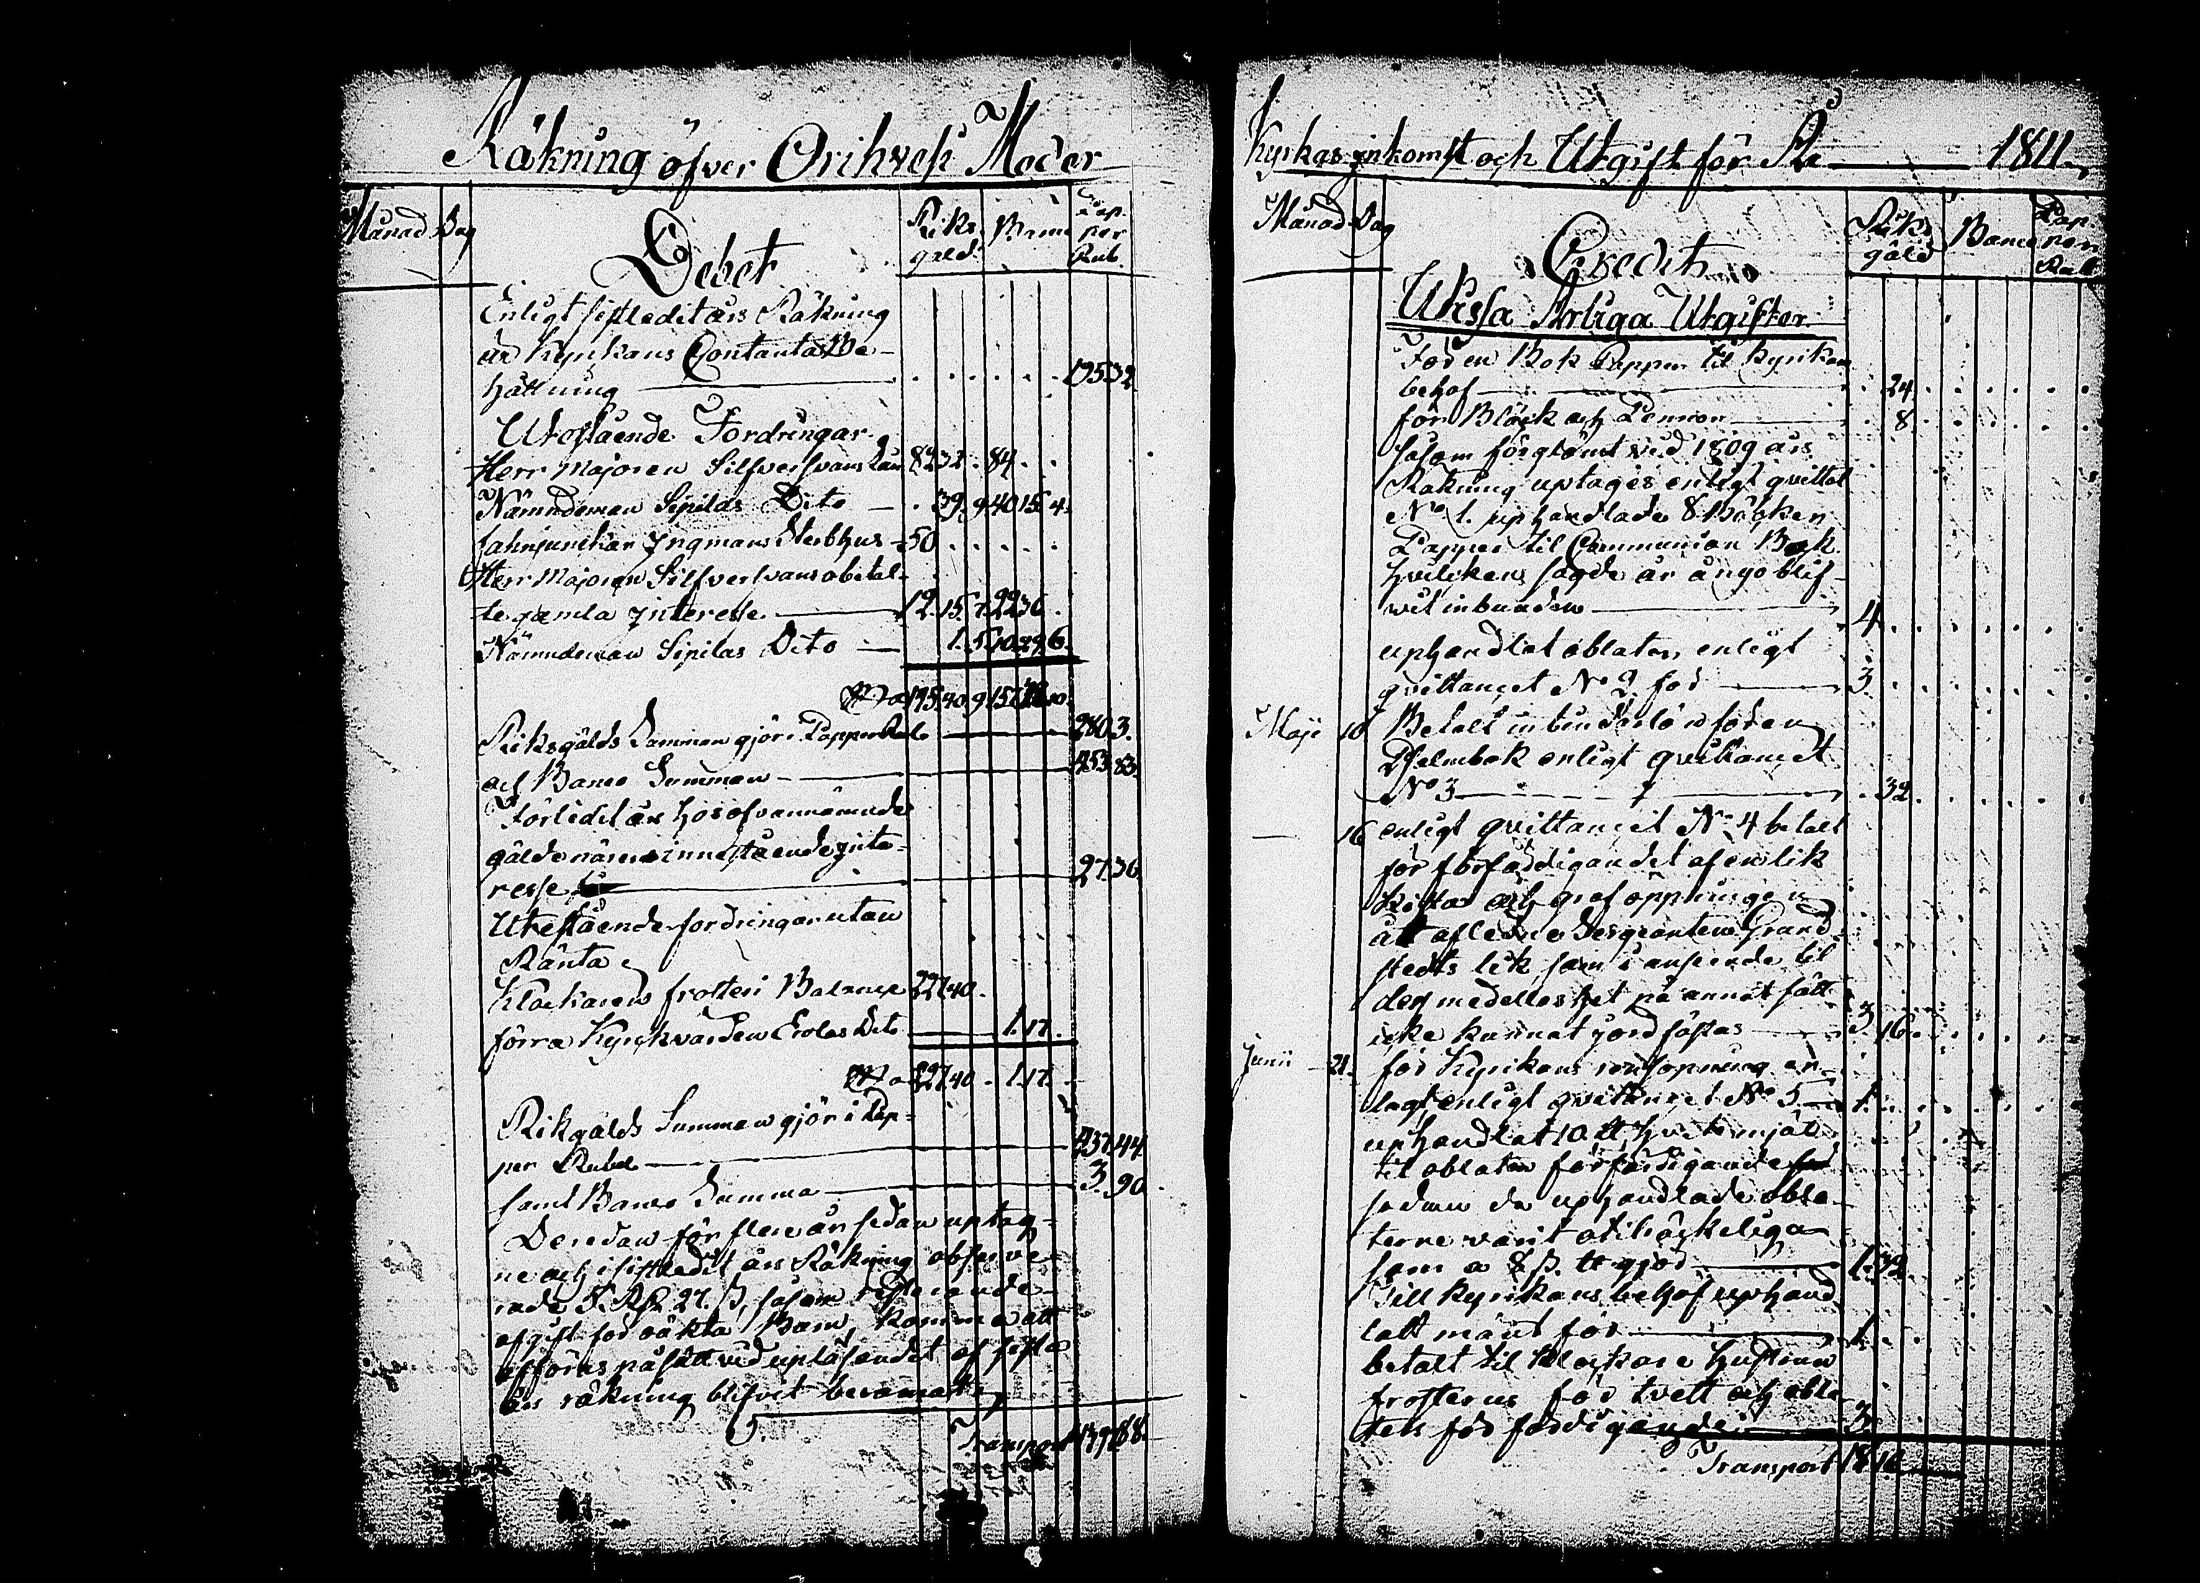 Räkning öfver Orihvesi Moder
Månad Dag
Debet
Riks gäld Banco Papper Rub.
Enligt sistledit års Räkning
är Kyrkans Contanta Be-
hållning 195 32
Utestående Fordringar
Herr Majoren Silfversvans Lån 82 32 . 84 . .
Nämndeman Sipilas Dito . 39. 9. 40 15 4.
fahnjunkar Ingmans Sterbhus 50 . . . . .
Herr Majoren Silfversvans obetal-
te gamla Interesse 12. 15. 7. 22 36 .
Nämndeman Sipilas Dito 1. 5. 10. 29. 6.
Riksgälds Summan gjör i Papper Rub. 280 3.
och Banco Summan 453 83.
Förledit år hos ofvannämnde
gäldenärer innestående Inte-
resse 27. 36
Utestående fordringar utan
Ränta
Klockaren frosteri Balance 227 40 .
förra Kyrkvärden Erolas Dito 1. 17.
227 40 . 1. 17.
Rikgälds Summan gjör i Pap-
per Rubel 437. 44.
samt Banco Summa 3. 90.
Den sedan för flere år sedan uptag-
ne och i sistledit års Räkning observe-
rade 5 Rd 27. ß, såsom resterande
afgift för oäkta Barn, komma att
afföras på sätt vid upläsandet af sista
års räkning blifvit
Transport 1397 88.
Kyrkas inkomst och Utgift för År 1811.
Månad Dag
Credit
Riks gäld Banco Papper Rub
Vissa Årliga Utgifter
För en Bok Papper til Kyrikans
behof . 24 . . . . .
för Bläck och Pennor . 8 . . . . .
såsom förglömt vid 1809 års
Räkning uptages enligt qvittot
No 1. uphandlade 8 Böcker
Papper til Communion Bok
hvilken sagde år å nyo blif-
vit inbunden 4 . . . . . .
uphandlat oblater, enligt
qvittancet No 2. för 3 . . . . . .
Maji 10 Betalt inbindarlön för en
Psalmbok enligt qvittancet
No 3 . 32 . . . . .
16 enligt qvittancet No 4 betalt
för förfärdigandet af en lik
kista och graföppningen
åt aflidne Sergeanten Grand
stedts lik, som i anseende til
dess medellöshet på annat sätt
icke kunnat jordfästas 3 16 . . . . .
Junii 21. för Kyrikans rensopning er-
lagt, enligt qvittancet No 5 1 . . . . . .
uphandlat 10 lt hvetemjöl
til oblaters förfärdigande
sedan de uphandlade obla-
terne varit otilräckeliga
som a 8 ß. lt gjör 1. 32
Till Kyrikans behof uphand
latt mäns för 1 . .
betalt til Klockare hustrun
frosterus för tvett och obla
ters förfärdigande 3
Transport 18 16